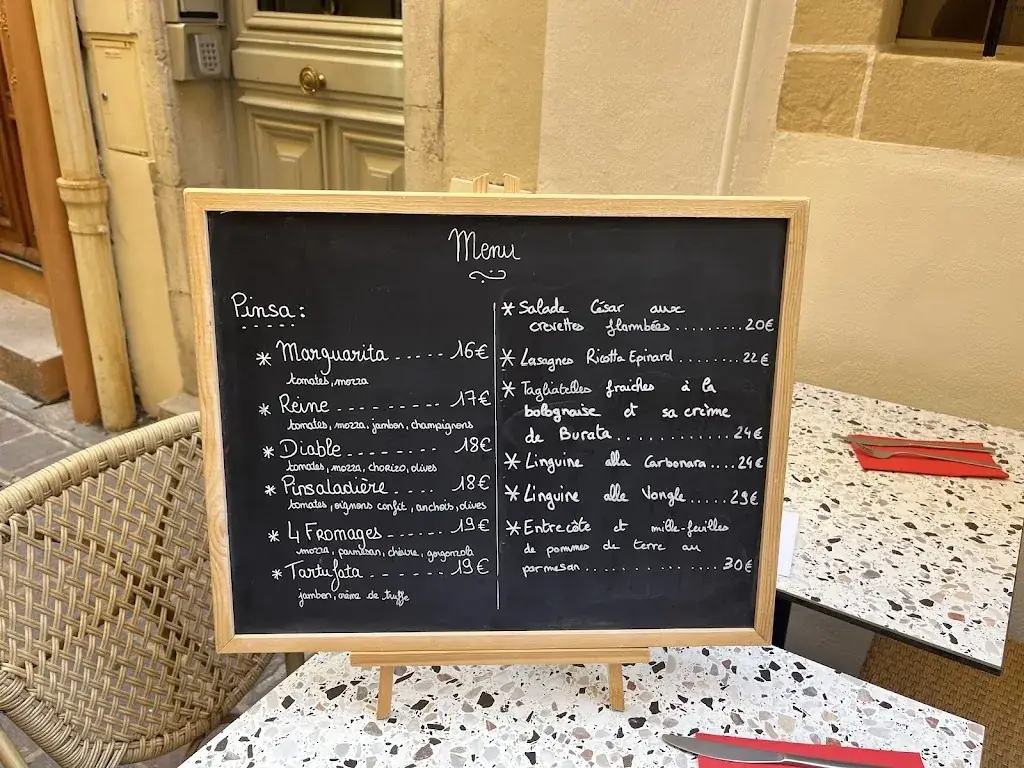 Menu
Pinsa:
* Marguarita ..... 16€
tomates, mozza
Reine ......... 17€
* tomates, mozza, jambon, champignons
* Diable ........ 18€
tomates, mozza, chorizo, olives
* Pinsaladière ..... 18€
tomates, oignons confit, anchois, olives
* 4 Fromages ...... 19€
mozza, parmesan, chèvre, gorgonzola
* Tartufata ....... 19€
jambon, crème de truffe
* Salade César aux
crevettes flambées ......... 20€
* Lasagnes Ricotta Epinard ........ 22€
* Tagliatelles fraiches à la
bolognaise et sa crème
de Burata ............ 24€
* Linguine alla Carbonara .... 24€
* Linguine alle Vongle ..... 29€
* Entrecôte et mille-feuilles
de pommes de terre au
parmesan ................. 30€